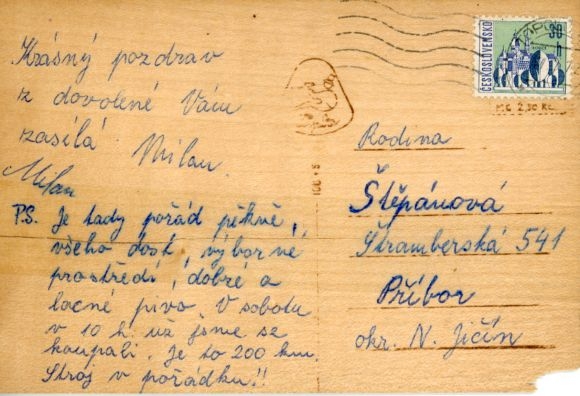 Krásný pozdrav
z dovolené Vám
zasílá Milan.
Milan
P.S. Je tady pořád pěkně,
všeho dost, výborné
prostředí, dobré a
lacné pivo. V sobotu
v 10 h. už jsme se
koupali. Je to 200 km
Stroj v pořádku!!
ČESKOSLOVENSKO
30
h
Kčs 2,50
Rodina
Štěpánová
Štramberská 541
Příbor
okr. N. Jičín